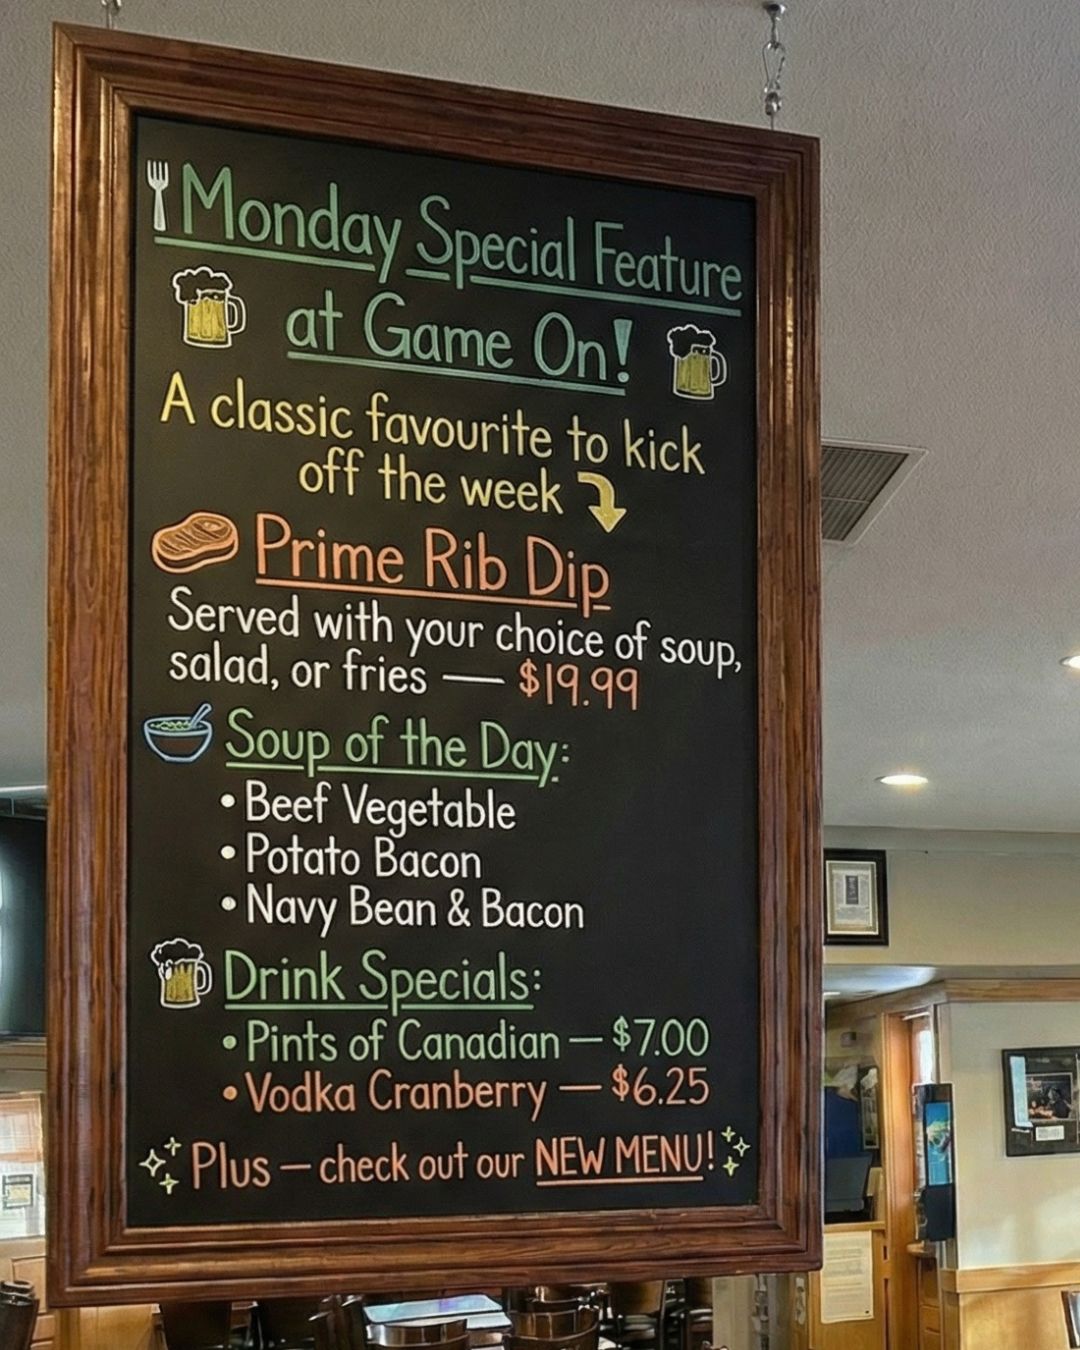 Monday Special Feature
at Game On!
A classic favourite to kick
off the week
Prime Rib Dip
Served with your choice of soup,
salad, or fries — $19.99
Soup of the Day:
• Beef Vegetable
• Potato Bacon
• Navy Bean & Bacon
Drink Specials:
• Pints of Canadian — $7.00
• Vodka Cranberry — $6.25
Plus — check out our NEW MENU!